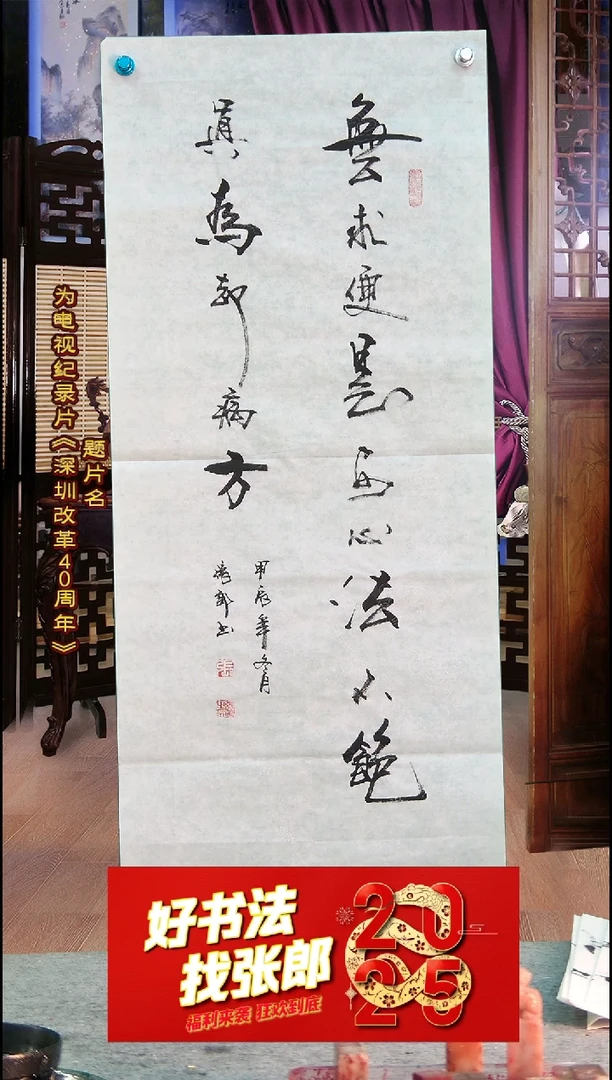 無求便是安心法不飽
真為却病方
甲辰年冬月
張郎书
为电视纪录片《深圳改革40周年》
题片名
好书法
找张郎
福利来袭 狂欢到底
2025